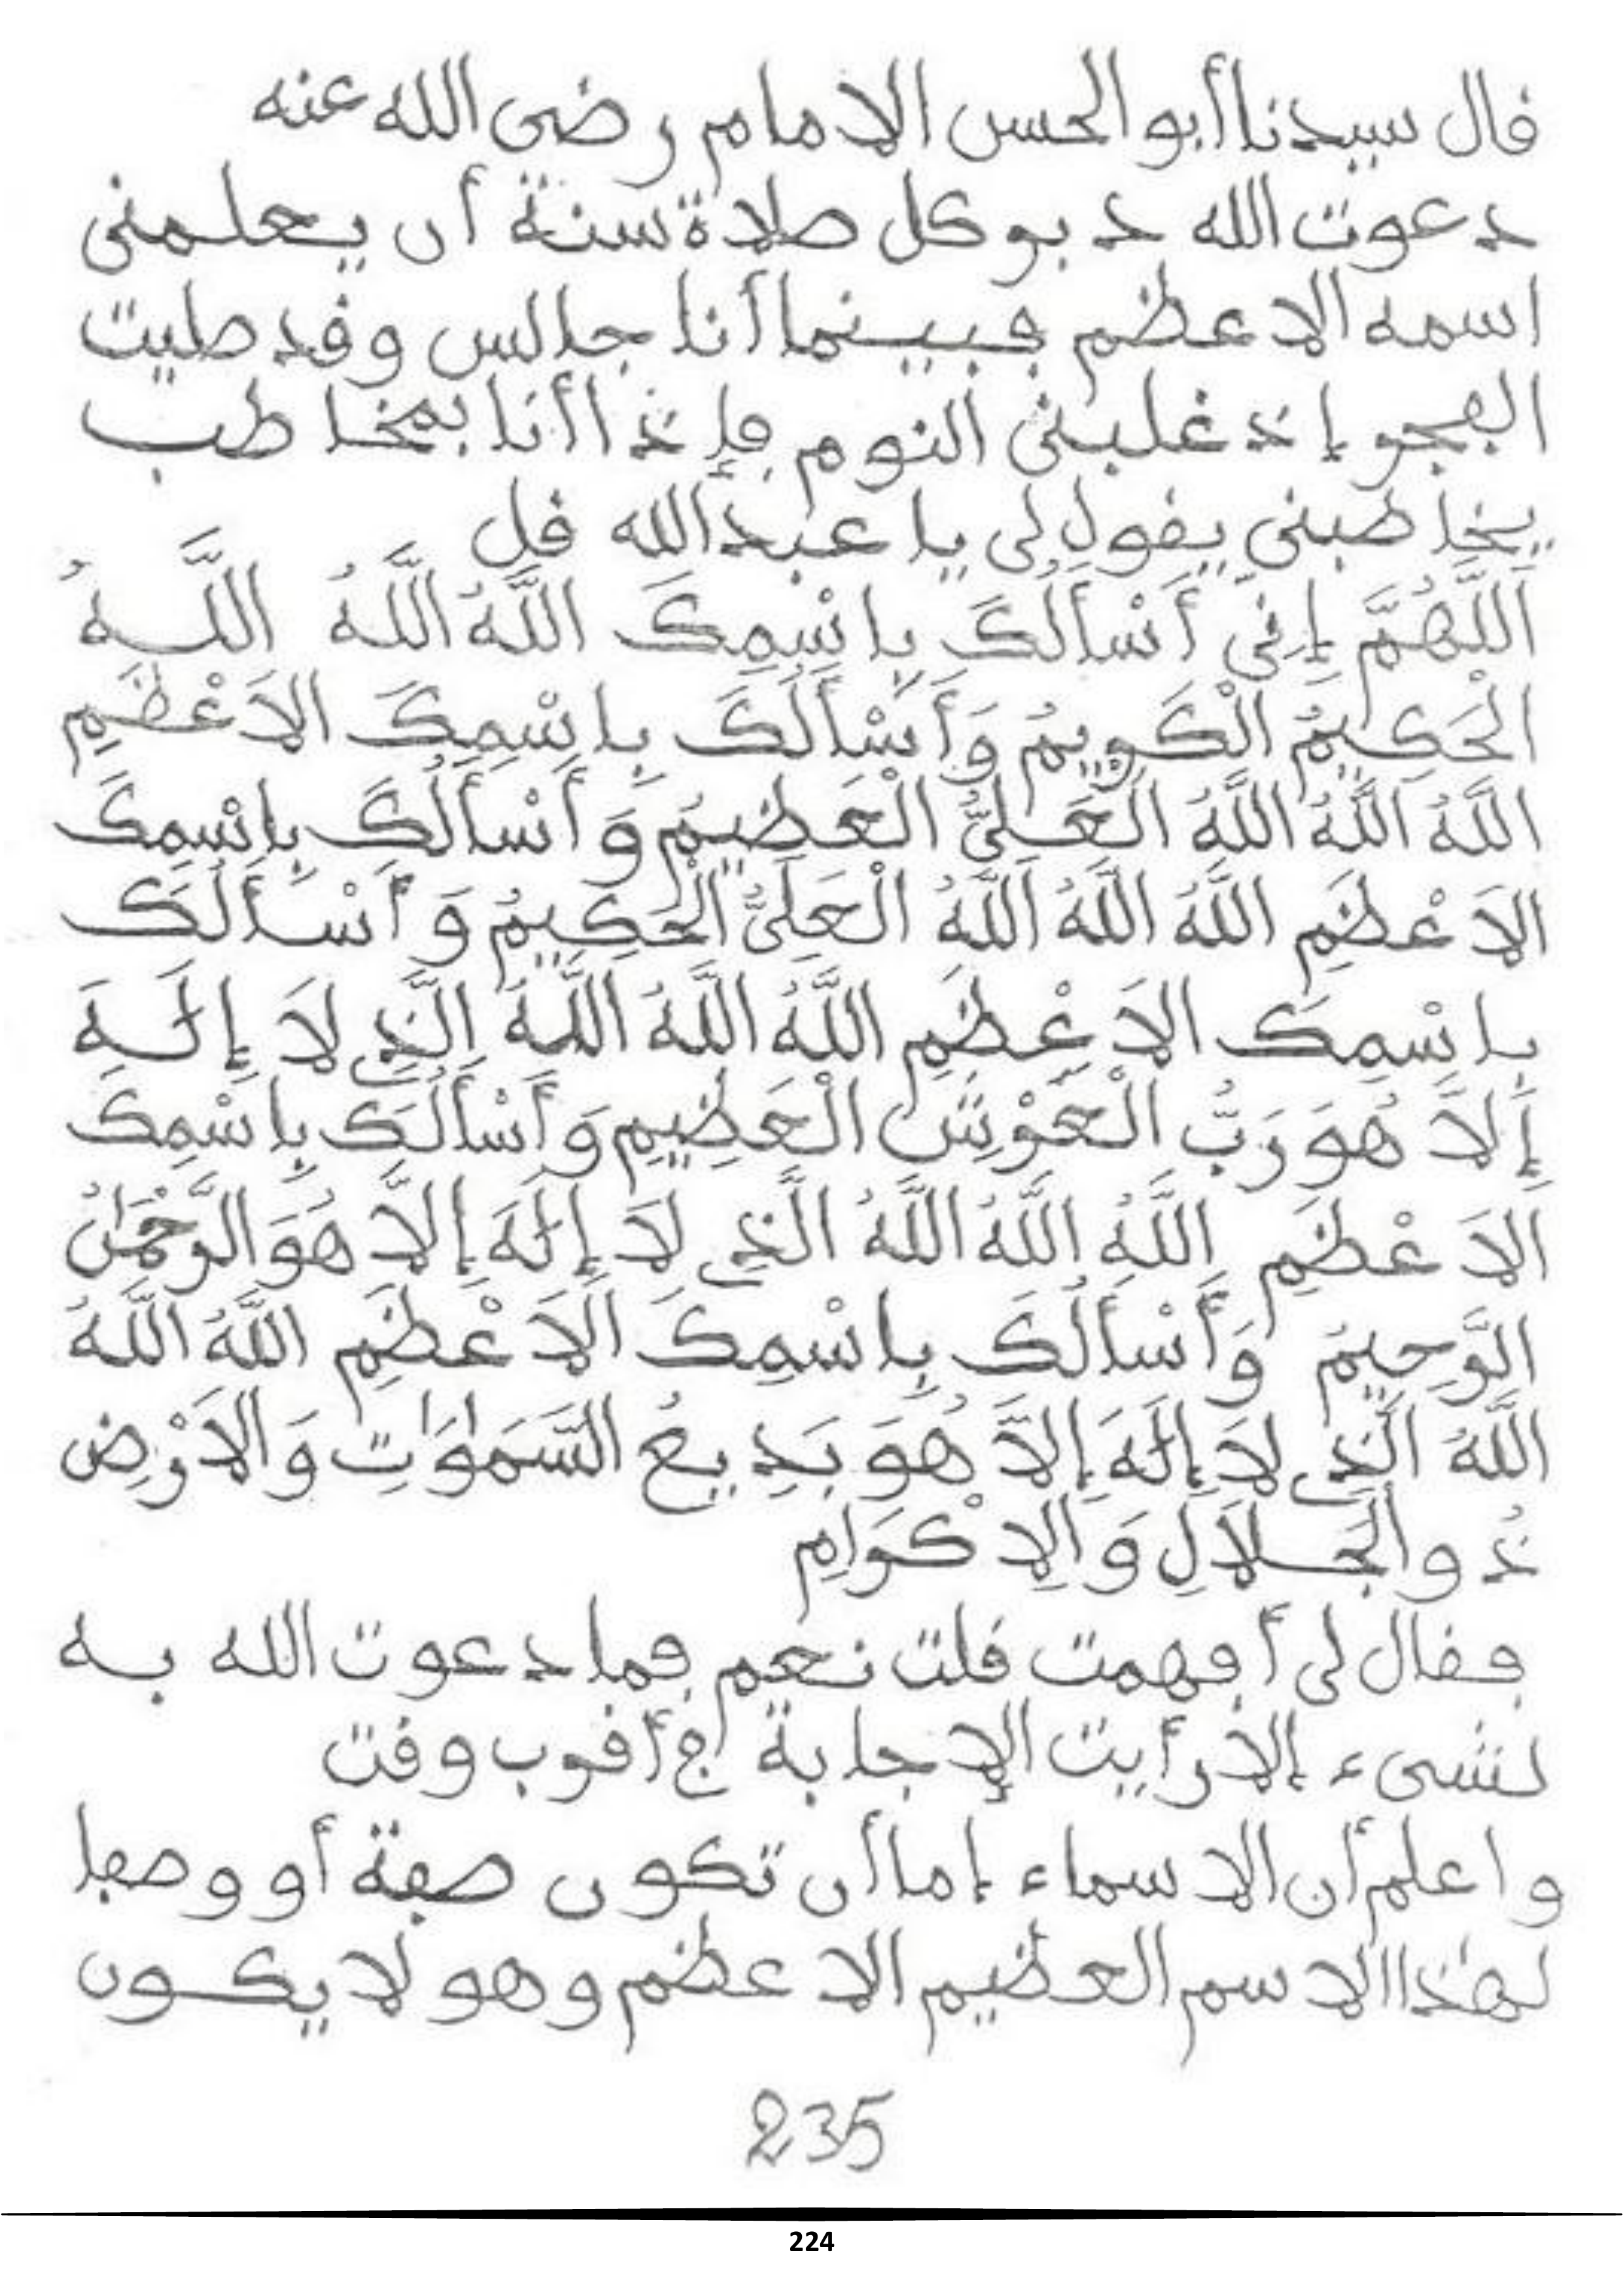 قال سيدنا أبو الحسن الامام رضى الله عنه
دعوت الله دبر كل صلاة سنة أن يعلمنى
اسمه الاعظم فبينما أنا جالس وقد صليت
الفجر إذ غلبنى النوم فإذا أنا بمخاطب
يخاطبنى يقول لى يا عبد الله قل
اَللَّهُمَّ إِنِّى أَسْأَلُكَ بِاسْمِكَ اللَّهُ اللَّهُ اللَّهُ
الْحَكِيمُ الْكَرِيمُ وَأَسْأَلُكَ بِاسْمِكَ الاَعْظَمِ
اللَّهُ اللَّهُ اللَّهُ الْعَلِىُّ الْعَظِيمُ وَأَسْأَلُكَ بِاسْمِكَ
الاَعْظَمِ اللَّهُ اللَّهُ اللَّهُ الْعَلِىُّ الْحَكِيمُ وَأَسْأَلُكَ
بِاسْمِكَ الاَعْظَمِ اللَّهُ اللَّهُ اللَّهُ الَّذِى لاَ إِلَٰهَ
إِلاَّ هُوَ رَبُّ الْعَرْشِ الْعَظِيمِ وَأَسْأَلُكَ بِاسْمِكَ
الاَعْظَمِ اللَّهُ اللَّهُ اللَّهُ الَّذِى لاَ إِلَٰهَ إِلاَّ هُوَ الرَّحْمَٰنُ
الرَّحِيمُ وَأَسْأَلُكَ بِاسْمِكَ الاَعْظَمِ اللَّهُ اللَّهُ
اللَّهُ الَّذِى لاَ إِلَٰهَ إِلاَّ هُوَ بَدِيعُ السَّمَٰوَٰتِ وَالاَرْضِ
ذُو الْجَلاَلِ وَالاِكْرَامِ
فقال لى أفهمت قلت نعم فما دعوت الله به
لشىء إلا رأيت الإجابة فى أقرب وقت
واعلم أن الاسماء إما أن تكون صفة أو وصفا
لهٰذا الاسم العظيم الاعظم وهو لا يكون
235
224